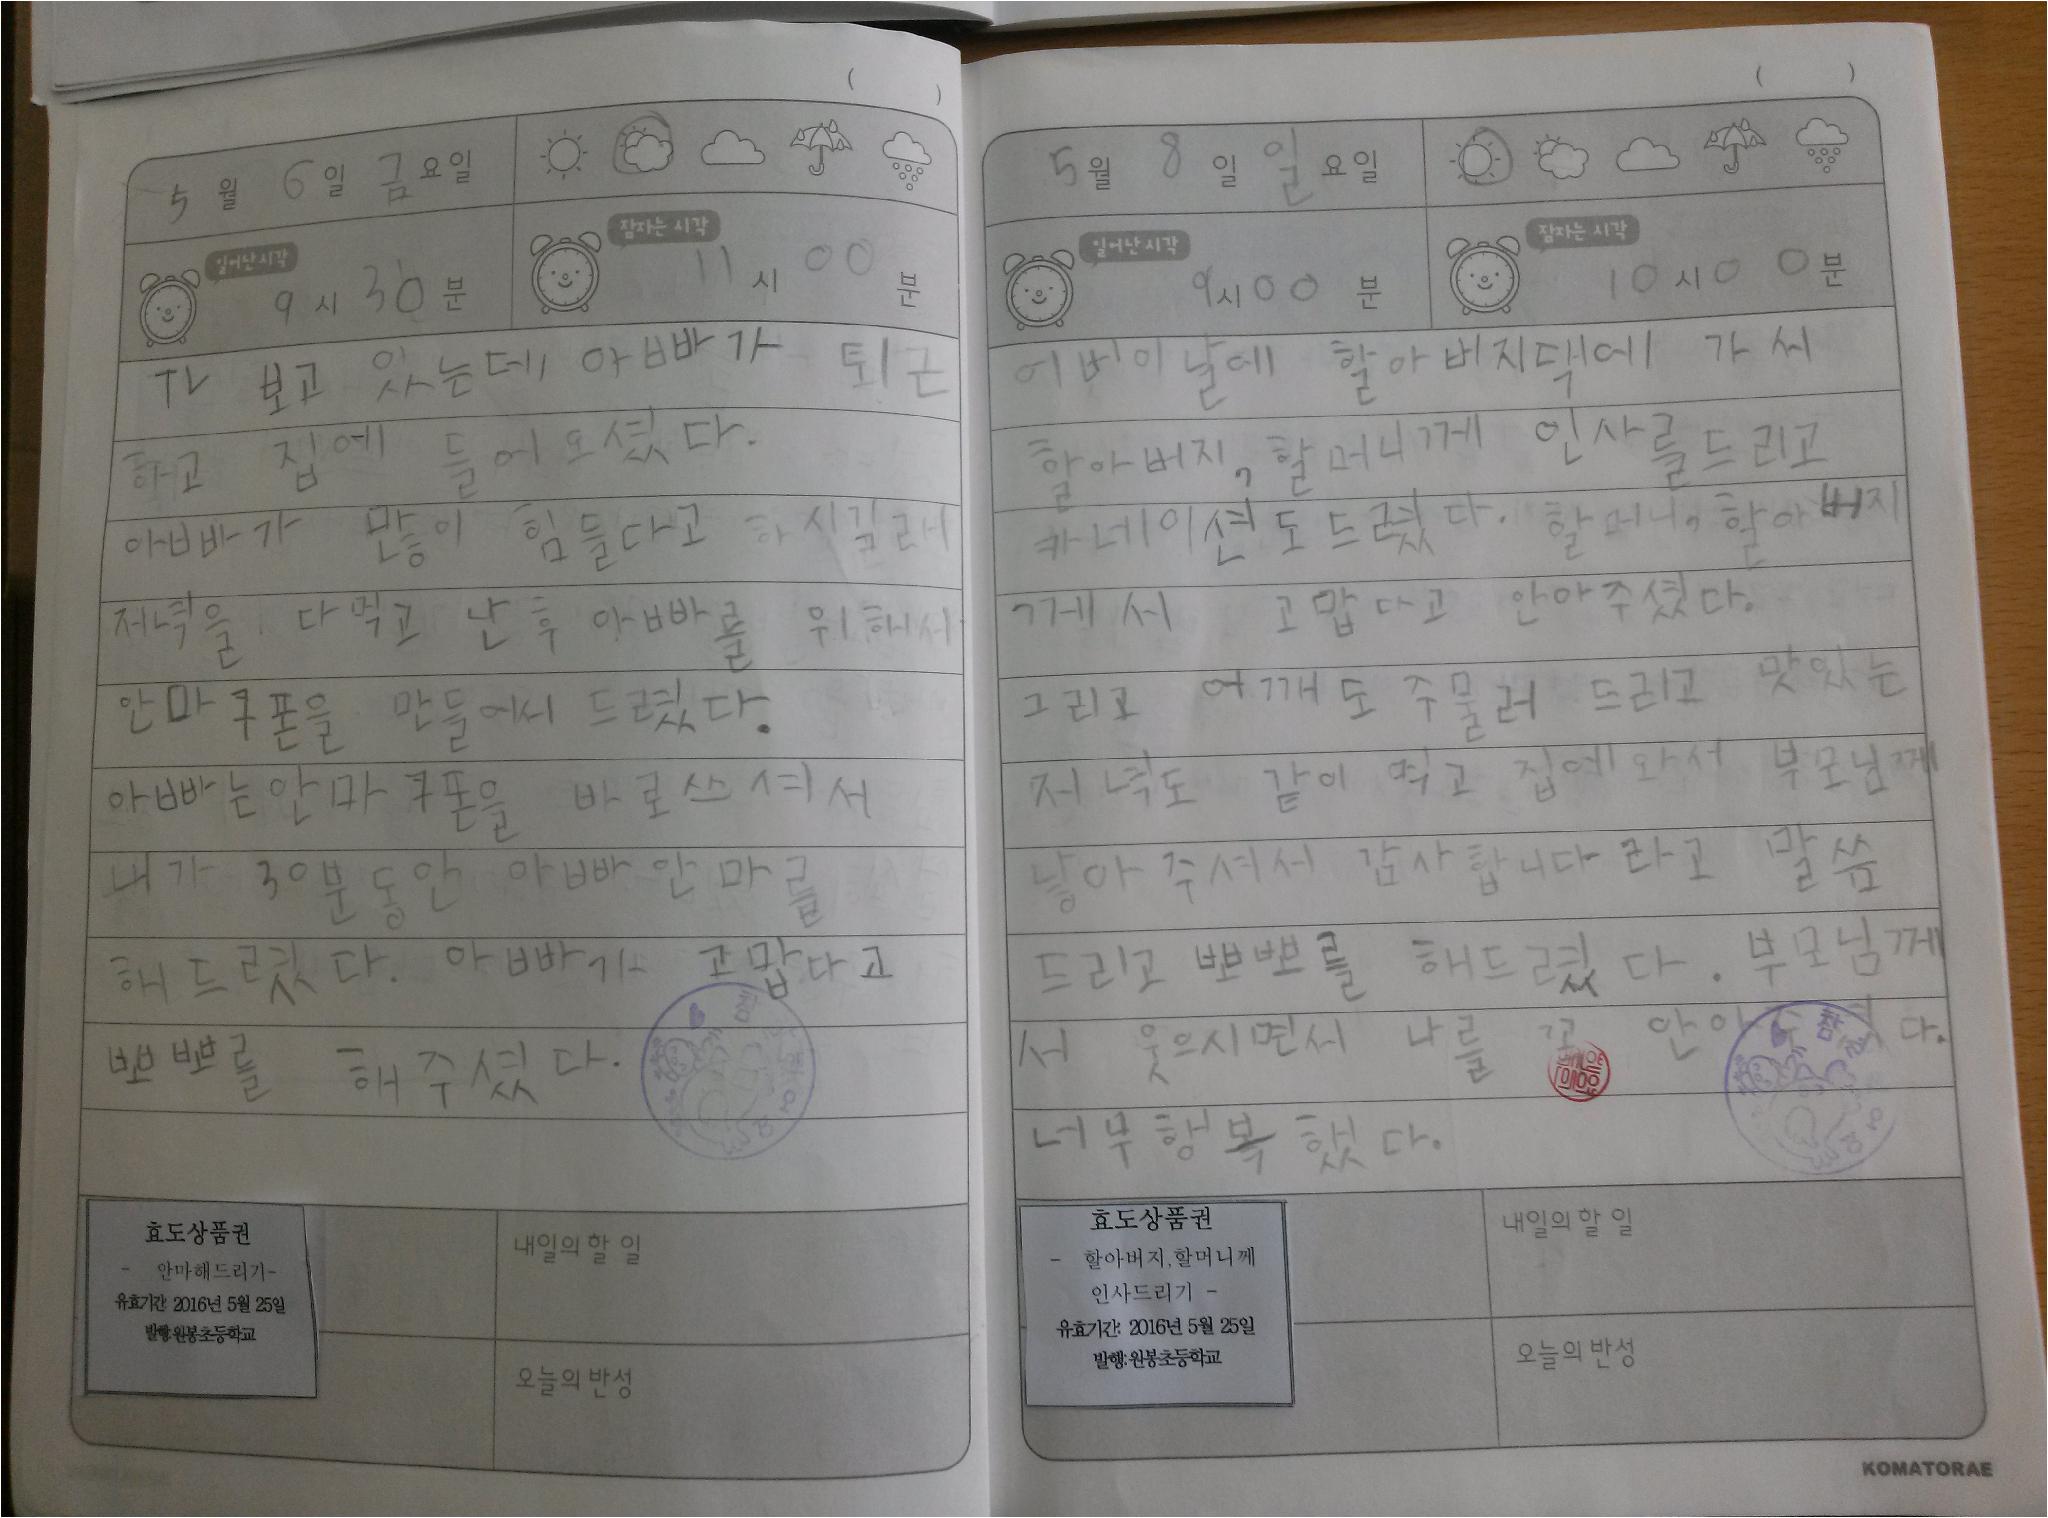 ( )
5 월 6 일 금 요일
일어난 시각
잠자는 시각
9 시 30 분
11 시 00 분
TV 보고 있는데 아빠가 퇴근
하고 집에 들어오셨다.
아빠가 많이 힘들다고 하시길래
저녁을 다먹고 난 후 아빠를 위해서
안마쿠폰을 만들어서 드렸다.
아빠는안마쿠폰을 바로쓰셔서
내가 30분동안 아빠안마를
해드렸다. 아빠가 고맙다고
뽀뽀를 해주셨다.
효도상품권
- 안마해드리기-
유효기간: 2016년 5월 25일
발행:원봉초등학교
내일의 할 일
오늘의 반성
( )
5 월 8 일 일 요일
일어난 시각
잠자는 시각
9 시 00 분
10 시 00 분
어버이날에 할아버지댁에 가써
할아버지, 할머니께 인사를드리고
카네이션도드렸다. 할머니, 할아버지
께서 고맙다고 안아주셨다.
그리고 어깨도 주물러 드리고 맛있는
저녁도 같이 먹고 집에와서 부모님께
낳아주셔서 감사합니다라고 말씀
드리고 뽀뽀를 해드렸다. 부모님께
서 웃으시면서 나를 꼬 안아 다.
너무행복했다.
효도상품권
- 할아버지,할머니께
인사드리기 -
유효기간: 2016년 5월 25일
발행:원봉초등학교
내일의 할 일
오늘의 반성
KOMATORAE